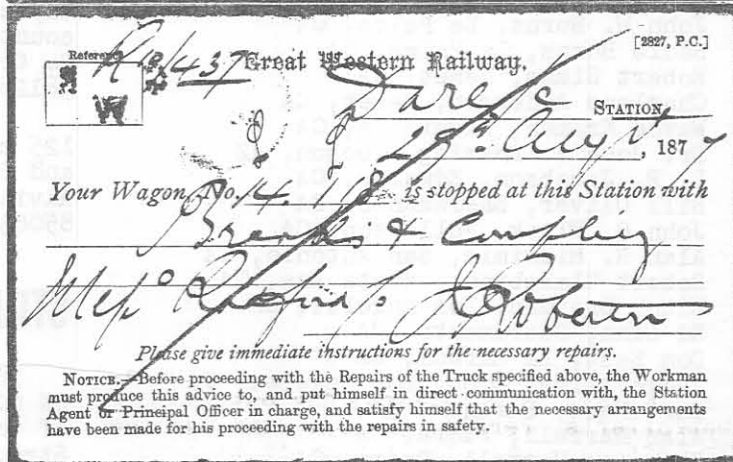 [2827, P.C.]
Reference
R 10/437
Great Western Railway,
STATION,
Augt, 1877
Your Wagon, No. 14.118 is stopped at this Station with
Breaks & Coupling
J Roberts
Please give immediate instructions for the necessary repairs.
NOTICE.—Before proceeding with the Repairs of the Truck specified above, the Workman
must produce this advice to, and put himself in direct communication with, the Station
Agent or Principal Officer in charge, and satisfy himself that the necessary arrangements
have been made for his proceeding with the repairs in safety.